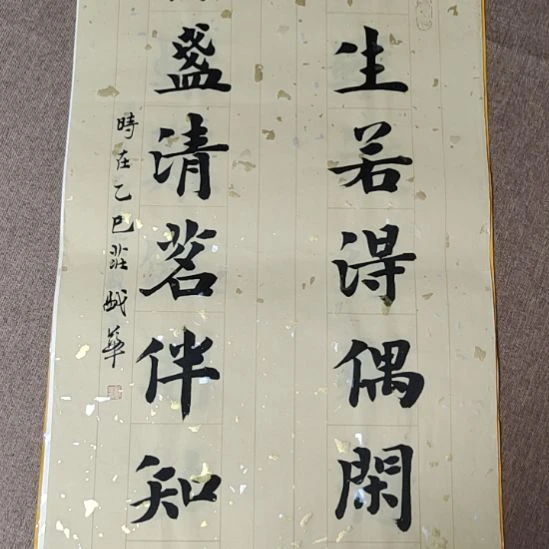 生若得偶閑
盏清茗伴知
時在乙巳莊
華